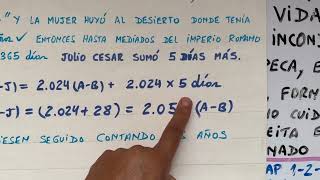 " Y LA MUJER HUYÓ AL DESIERTO DONDE TENÍA
ENTONCES HASTA MEDIADOS DEL IMPERIO ROMANO
365 días JULIO CESAR SUMÓ 5 DÍAS MÁS.
-J) = 2.024 (A-B) + 2.024 x 5 días
-J) = (2.024 + 28) = 2.05 (A-B)
SEGUIDO CONTANDO AÑOS
VIDA
INCON
PECA, E
FORM
CUID
EITA
NADO
AP 1-2-